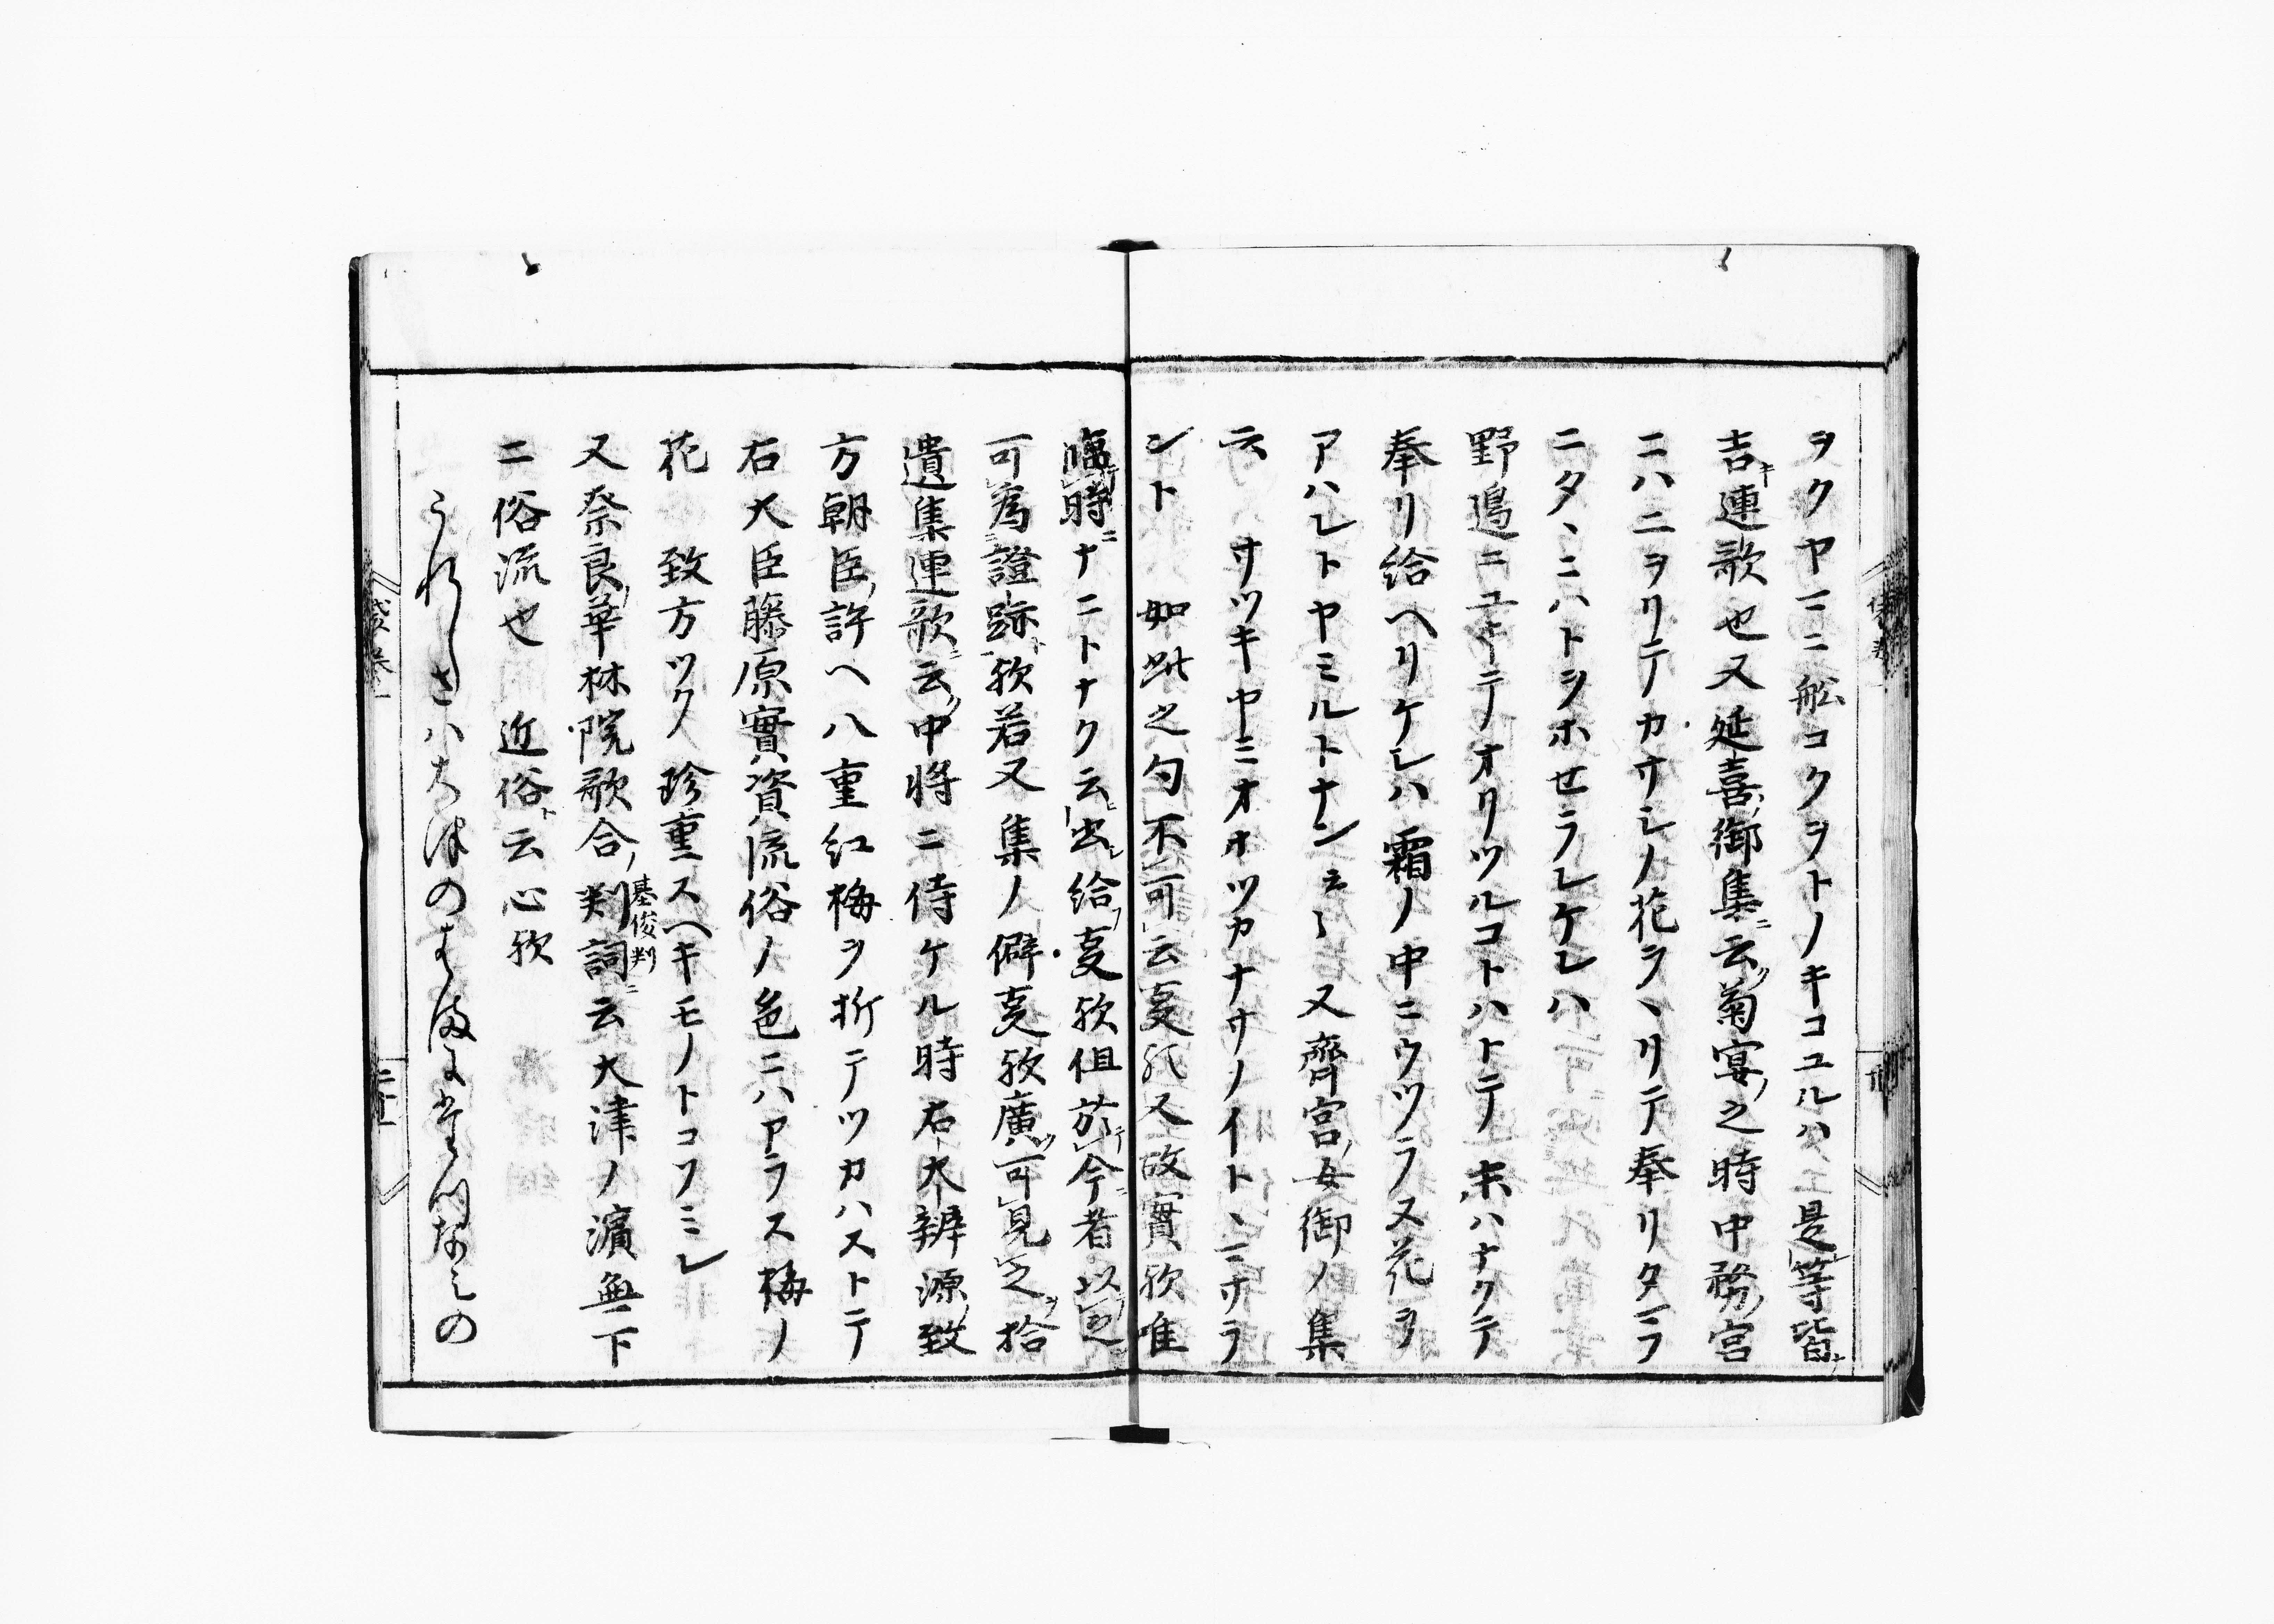 ヲクヤマニ舩コクヲトノキコユルハ 是等皆
吉連歌也又延喜御集ニ云菊宴之時中務宮
ニハニヲリテカサシノ花ラヽリテ奉リタマフ
ニタヽニハトシホセラレケレハ
野邉ニユキテノオリツルコトハトテ 末ハナクテ
奉リ給ヘリケレハ霜ノ中ニウツラヌ花ヲ
アハレトヤミルトナン云〻又齊宮女御ノ集
云 サツキヤミオホツカナサノイトヽマサラ
ント 如此之句不可云㕝欤又故實欤唯
臨時ニナニトナク云出給㕝欤但於今者以之
可為證跡欤若又集ノ僻㕝欤廣可見之拾
遺集連歌ニ云中将ニ侍ケル時右大辨源致
方朝臣許ヘ八重紅梅ヲ折テツカハストテ
右大臣藤原實資流俗ノ色ニハアラス梅ノ
花 致方ツク 珍重スヘキモノトコソミレ
又奈良華林院歌合判詞ニ云大津ノ濵無下
基俊判
ニ俗流也 近俗ト云心欤
うれしさハ大津のはまに
袋巻一